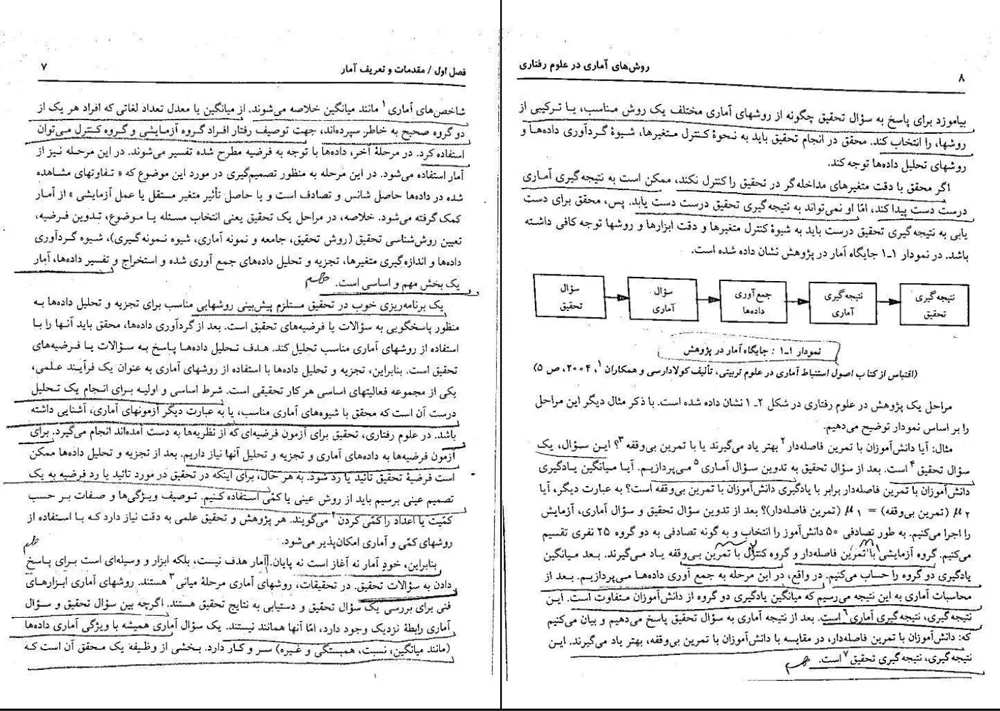 فصل اول / مقدمات و تعریف آمار ۷
شاخص‌های آماری ۱ مانند میانگین خلاصه می‌شوند. از میانگین یا معدل تعداد لغاتی که افراد هر یک از
دو گروه صحیح به خاطر سپرده‌اند، جهت توصیف رفتار افراد گروه آزمایشی و گروه کنترل می‌توان
استفاده کرد. در مرحلهٔ آخر، داده‌ها با توجه به فرضیه مطرح شده تفسیر می‌شوند. در این مرحله نیز از
آمار استفاده می‌شود. در این مرحله به منظور تصمیم‌گیری در مورد این موضوع که « تفاوتهای مشاهده
شده در داده‌ها حاصل شانس و تصادف است و یا حاصل تأثیر متغیر مستقل یا عمل آزمایشی » از آمار
کمک گرفته می‌شود. خلاصه، در مراحل یک تحقیق یعنی انتخاب مسئله یا موضوع، تدوین فرضیه،
تعیین روش‌شناسی تحقیق (روش تحقیق، جامعه و نمونه آماری، شیوه نمونه‌گیری)، شیوه گردآوری
داده‌ها و اندازه‌گیری متغیرها، تجزیه و تحلیل داده‌های جمع آوری شده و استخراج و تفسیر داده‌ها، آمار
یک بخش مهم و اساسی است.
یک برنامه‌ریزی خوب در تحقیق مستلزم پیش‌بینی روشهایی مناسب برای تجزیه و تحلیل داده‌ها به
منظور پاسخگویی به سؤالات یا فرضیه‌های تحقیق است. بعد از گردآوری داده‌ها، محقق باید آنها را با
استفاده از روشهای آماری مناسب تحلیل کند. هدف تحلیل داده‌ها پاسخ به سؤالات یا فرضیه‌های
تحقیق است. بنابراین، تجزیه و تحلیل داده‌ها با استفاده از روشهای آماری به عنوان یک فرآیند علمی،
یکی از مجموعه فعالیتهای اساسی هر کار تحقیقی است. شرط اساسی و اولیه برای انجام یک تحلیل
درست آن است که محقق با شیوه‌های آماری مناسب، یا به عبارت دیگر آزمونهای آماری، آشنایی داشته
باشد. در علوم رفتاری، تحقیق برای آزمون فرضیه‌ای که از نظریه‌ها به دست آمده‌اند انجام می‌گیرد. برای
آزمون فرضیه‌ها به داده‌های آماری و تجزیه و تحلیل آنها نیاز داریم. بعد از تجزیه و تحلیل داده‌ها ممکن
است فرضیهٔ تحقیق تائید یا رد شود. به هر حال، برای اینکه در تحقیق در مورد تائید یا رد فرضیه به یک
تصمیم عینی برسیم باید از روش عینی یا کمّی استفاده کنیم. توصیف ویژگی‌ها و صفات بر حسب
کمّیت یا اعداد را کمّی کردن ۲ می‌گویند. هر پژوهش و تحقیق علمی به دقت نیاز دارد که با استفاده از
روشهای کمّی و آماری امکان‌پذیر می‌شود.
بنابراین، خودِ آمار نه آغاز است نه پایان. آمار هدف نیست، بلکه ابزار و وسیله‌ای است برای پاسخ
دادن به سؤالات تحقیق. در تحقیقات، روشهای آماری مرحلهٔ میانی ۳ هستند. روشهای آماری ابزارهای
فنی برای بررسی یک سؤال تحقیق و دستیابی به نتایج تحقیق هستند. اگرچه بین سؤال تحقیق و سؤال
آماری رابطهٔ نزدیک وجود دارد، امّا آنها همانند نیستند. یک سؤال آماری همیشه با ویژگی آماری داده‌ها
(مانند میانگین، نسبت، همبستگی و غیره) سر و کار دارد. بخشی از وظیفه یک محقق آن است که
۸ روش‌های آماری در علوم رفتاری
بیاموزد برای پاسخ به سؤال تحقیق چگونه از روشهای آماری مختلف یک روش مناسب، یا ترکیبی از
روشها، را انتخاب کند. محقق در انجام تحقیق باید به نحوهٔ کنترل متغیرها، شیوهٔ گردآوری داده‌ها و
روشهای تحلیل داده‌ها توجه کند.
اگر محقق با دقت متغیرهای مداخله‌گر در تحقیق را کنترل نکند، ممکن است به نتیجه‌گیری آماری
درست دست پیدا کند، امّا او نمی‌تواند به نتیجه‌گیری تحقیق درست دست یابد. پس، محقق برای دست
یابی به نتیجه‌گیری تحقیق درست باید به شیوهٔ کنترل متغیرها و دقت ابزارها و روشها توجه کافی داشته
باشد. در نمودار ۱-۱ جایگاه آمار در پژوهش نشان داده شده است.
سؤال تحقیق
سؤال آماری
جمع‌آوری داده‌ها
نتیجه‌گیری آماری
نتیجه‌گیری تحقیق
نمودار ۱-۱ : جایگاه آمار در پژوهش
(اقتباس از کتاب اصول استنباط آماری در علوم تربیتی، تألیف کولادارسی و همکاران ۱، ۲۰۰۴، ص ۵)
مراحل یک پژوهش در علوم رفتاری در شکل ۲-۱ نشان داده شده است. با ذکر مثال دیگر این مراحل
را بر اساس نمودار توضیح می‌دهیم.
مثال: آیا دانش‌آموزان با تمرین فاصله‌دار ۲ بهتر یاد می‌گیرند یا با تمرین بی‌وقفه ۳؟ این سؤال، یک
سؤال تحقیق ۴ است. بعد از سؤال تحقیق به تدوین سؤال آماری ۵ می‌پردازیم. آیا میانگین یادگیری
دانش‌آموزان با تمرین فاصله‌دار برابر با یادگیری دانش‌آموزان با تمرین بی‌وقفه است؟ به عبارت دیگر، آیا
μ۲ (تمرین بی‌وقفه) = μ۱ (تمرین فاصله‌دار)؟ بعد از تدوین سؤال تحقیق و سؤال آماری، آزمایش
را اجرا می‌کنیم. به طور تصادفی ۵۰ دانش‌آموز را انتخاب و به گونه تصادفی به دو گروه ۲۵ نفری تقسیم
می‌کنیم. گروه آزمایشی با تمرین فاصله‌دار و گروه کنترل با تمرین بی‌وقفه یاد می‌گیرند. بعد میانگین
یادگیری دو گروه را حساب می‌کنیم. در واقع، در این مرحله به جمع آوری داده‌ها می‌پردازیم. بعد از
محاسبات آماری به این نتیجه می‌رسیم که میانگین یادگیری دو گروه از دانش‌آموزان متفاوت است. این
نتیجه‌گیری، نتیجه‌گیری آماری ۶ است. بعد از نتیجه آماری به سؤال تحقیق پاسخ می‌دهیم و بیان می‌کنیم
که: دانش‌آموزان با تمرین فاصله‌دار، در مقایسه با دانش‌آموزان با تمرین بی‌وقفه، بهتر یاد می‌گیرند. این
نتیجه‌گیری، نتیجه‌گیری تحقیق ۷ است.